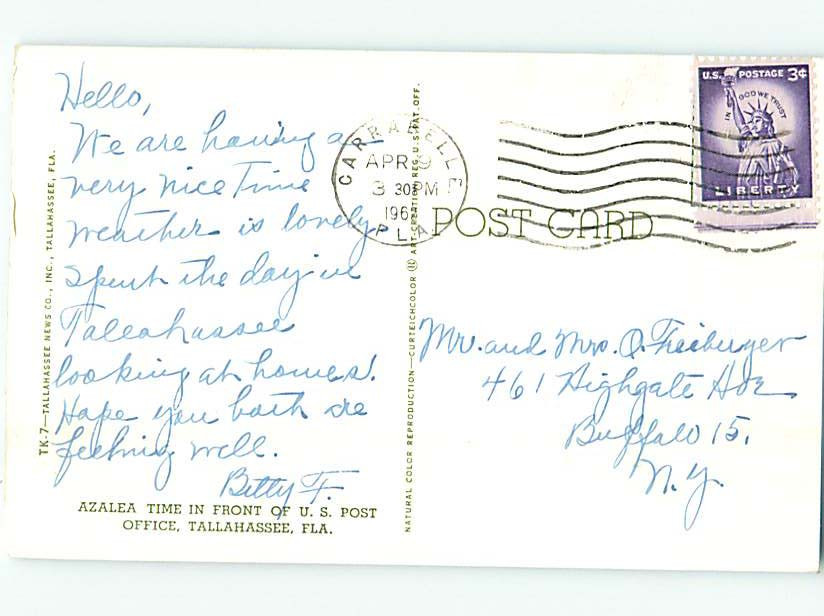 Hello,
We are having a
very nice Time
weather is lovely
Spent the day in
Tallahassee
looking at homes.
Hope you both are
feeling well.
Betty F.
AZALEA TIME IN FRONT OF U. S. POST
OFFICE, TALLAHASSEE, FLA.
TK-7—TALLAHASSEE NEWS CO., INC., TALLAHASSEE, FLA.
NATURAL COLOR REPRODUCTION—CURTEICHCOLOR ® ART-CREATION REG. U.S. PAT. OFF.
CARRABELLE
APR 9
3 30PM
196
FLA
POST CARD
U.S. POSTAGE 3¢
IN GOD WE TRUST
LIBERTY
Mr. and Mrs. O. Freiburger
461 Highgate Ave
Buffalo 15,
N.Y.